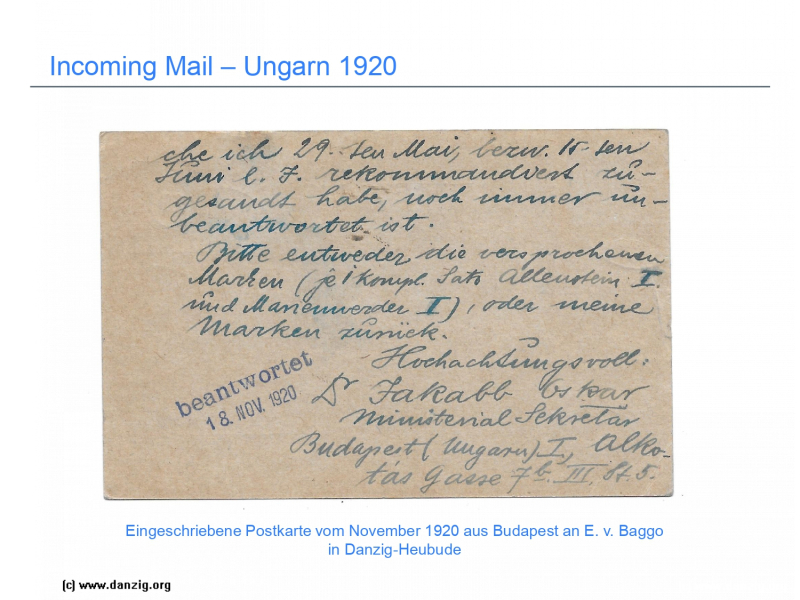 Incoming Mail – Ungarn 1920
che ich 29. ten Mai, bezw. 15 ten
Juni l. J. rekommandiert zu-
gesandt habe, noch immer un-
beantwortet ist.
Bitte entweder die versprochenen
Marken (je 1 kompl. Satz Allenstein I.
und Marienwerder I), oder meine
Marken zurück.
Hochachtungsvoll:
Dr Jakabb Oskar
Ministerial Sekretär
Budapest (Ungarn) I., Alko-
tás Gasse 7b. III. St. 5.
beantwortet
18. NOV. 1920
Eingeschriebene Postkarte vom November 1920 aus Budapest an E. v. Baggo
in Danzig-Heubude
(c) www.danzig.org